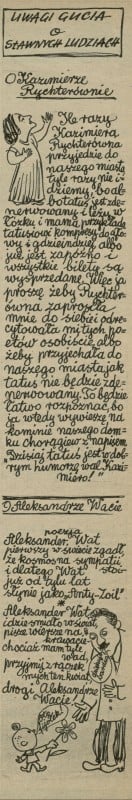 UWAGI GUCIA
O
SŁAWNYCH LUDZIACH
O Kazimierze
Rychterównie
Ile razy
Kazimiera
Rychterówna
przyjedzie do
naszego miasta
tyle razy nie i-
dziemy, bo al-
bo tatuś jest zde-
nerwowany i leży w
łóżku i mama przykłada
tatusiowi kompresy do gło-
wy i gdzieindziej, albo
już jest zapóźno i
wszystkie bilety są
wysprzedane. Więc ja
proszę żeby Rychter-
ówna zaprosiła
mnie do siebie i ode-
cytowała mi tych po-
etów osobiście, albo
żeby przyjechała do
naszego miasta jak
tatuś nie będzie zde-
nerwowany. To będzie
łatwo rozpoznać, bo
ja wtedy wywieszę na
kominie naszego dom-
ku chorągiew z napisem
"Dzisiaj tatuś jest w dob-
rym humorze wal Kazi-
miero!"
O Aleksandrze Wacie
poezja
Aleksander Wat
pierwszy w świecie zgadł,
że kosmos na sympatji
i dlatego "Wat" stoi
już od tylu lat
słynie jako "Anty-Zoil"
Aleksander Wat
idzie smutki w świat
pisze wiersze na
krajząca
chociaż mam tyle
wad
przyjmij z rączek
mych ten kwiat
drogi Aleksandrze
Wacie